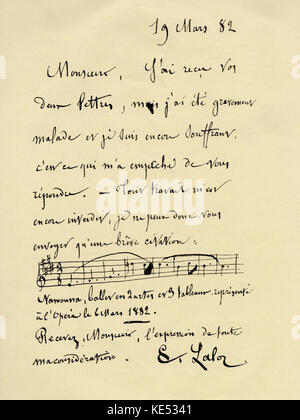 19 Mars 82
Monsieur, J'ai reçu vos
deux lettres, mais j'ai été gravement
malade et je suis encore souffrant,
c'est ce qui m'a empêché de vous
répondre. — Tout travail m'est
encore interdit, je ne peux donc vous
envoyer qu'une brève citation :
Namouna, ballet en 2 actes et 3 tableaux représenté
à l'Opéra le 6 Mars 1882.
Recevez, Monsieur, l'expression de toute
ma considération. E. Lalo
alamy
Image ID: KE5341
www.alamy.com